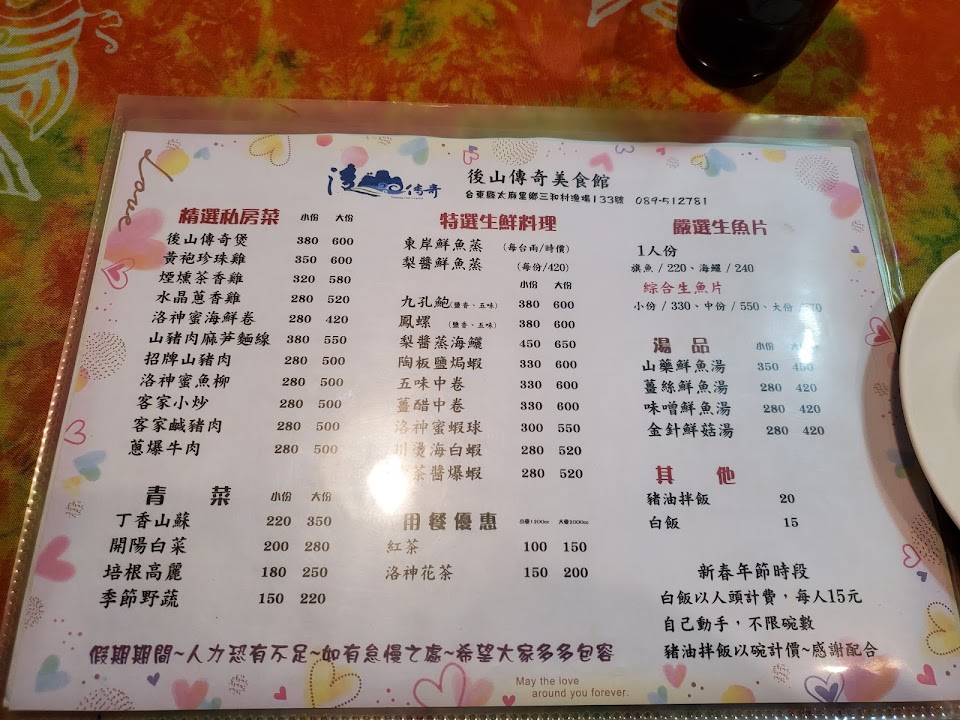 Love
傳奇
後山傳奇美食館
台東縣太麻里鄉三和村漁場133號 089-512781
精選私房菜 小份 大份
後山傳奇煲 380 600
黃袍珍珠雞 350 600
煙燻茶香雞 320 580
水晶蔥香雞 280 520
洛神蜜海鮮卷 280 420
山豬肉麻笋麵線 380 550
招牌山豬肉 280 500
洛神蜜魚柳 280 500
客家小炒 280 500
客家鹹豬肉 280 500
蔥爆牛肉 280 500
青菜 小份 大份
丁香山蘇 220 350
開陽白菜 200 280
培根高麗 180 250
季節野蔬 150 220
特選生鮮料理
東岸鮮魚蒸 (每台兩/時價)
梨醬鮮魚蒸 (每份/420)
小份 大份
九孔鮑(鹽香、五味) 380 600
鳳螺 (鹽香、五味) 380 600
梨醬蒸海鱺 450 650
陶板鹽焗蝦 330 600
五味中卷 330 600
薑醋中卷 330 600
洛神蜜蝦球 300 550
川燙海白蝦 280 520
茶醬爆蝦 280 520
用餐優惠 小壺1200cc 大壺2000cc
紅茶 100 150
洛神花茶 150 200
嚴選生魚片
1人份
旗魚/220、海鱺/240
綜合生魚片
小份/330、中份/550、大份/
湯品 小份
山藥鮮魚湯 350 450
薑絲鮮魚湯 280 420
味噌鮮魚湯 280 420
金針鮮菇湯 280 420
其他
豬油拌飯 20
白飯 15
新春年節時段
白飯以人頭計費，每人15元
自己動手，不限碗數
豬油拌飯以碗計價~感謝配合
假期期間~人力恐有不足~如有怠慢之處~希望大家多多包容
May the love
around you forever.